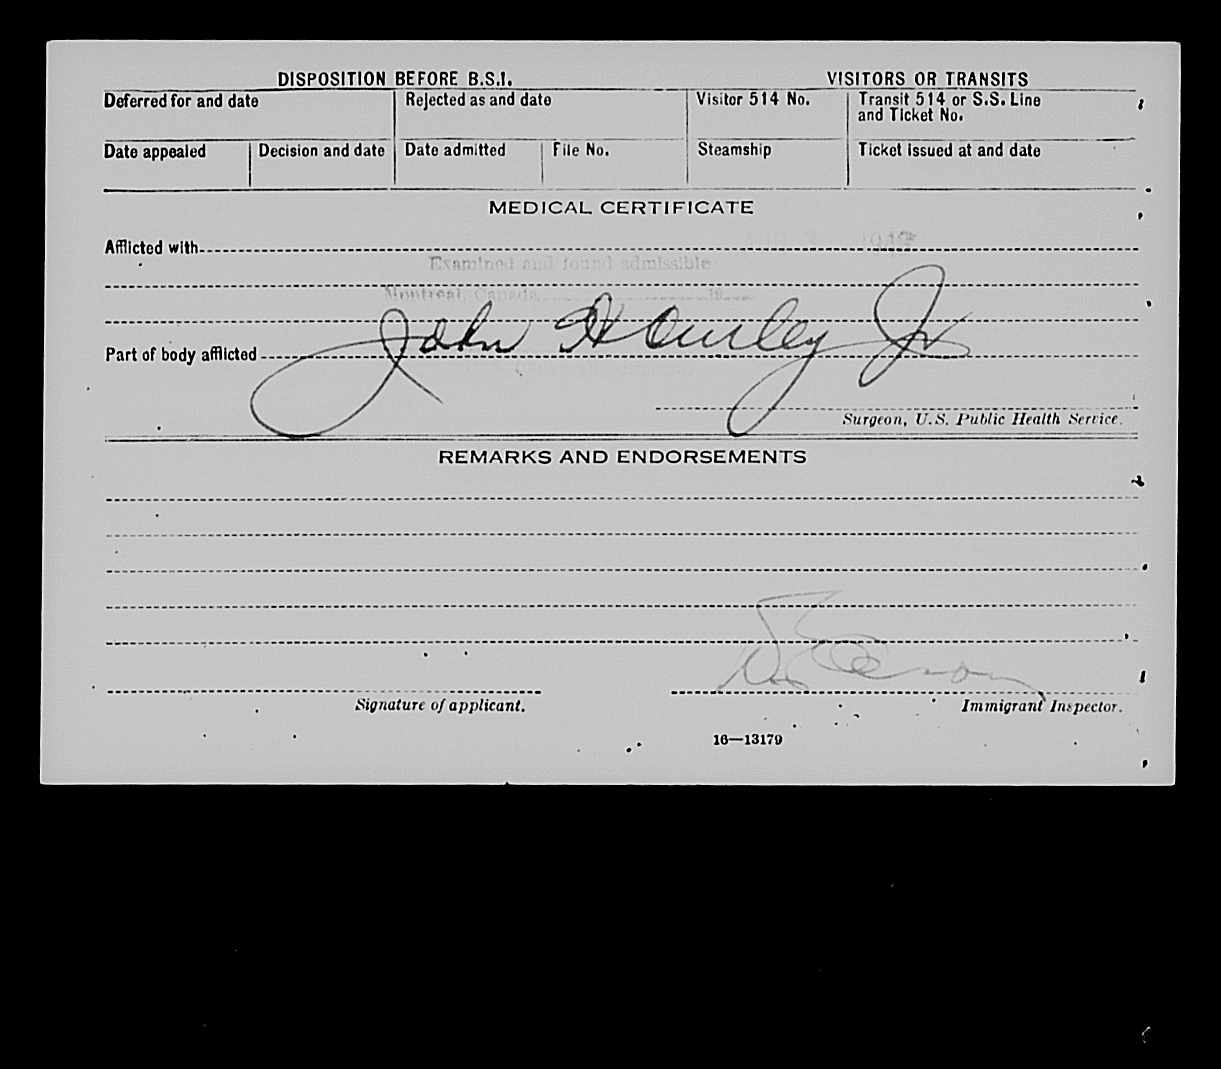 DISPOSITION BEFORE B.S.I. VISITORS OR TRANSITS
Deferred for and date Rejected as and date Visitor 514 No. Transit 514 or S.S. Line and Ticket No.
Date appealed Decision and date Date admitted File No. Steamship Ticket issued at and date
MEDICAL CERTIFICATE
Afflicted with
Examined and found admissible
Montreal, Canada, 19
John Hawley Jr
Part of body afflicted
Surgeon, U.S. Public Health Service.
REMARKS AND ENDORSEMENTS
Signature of applicant. Immigrant Inspector.
16—13179